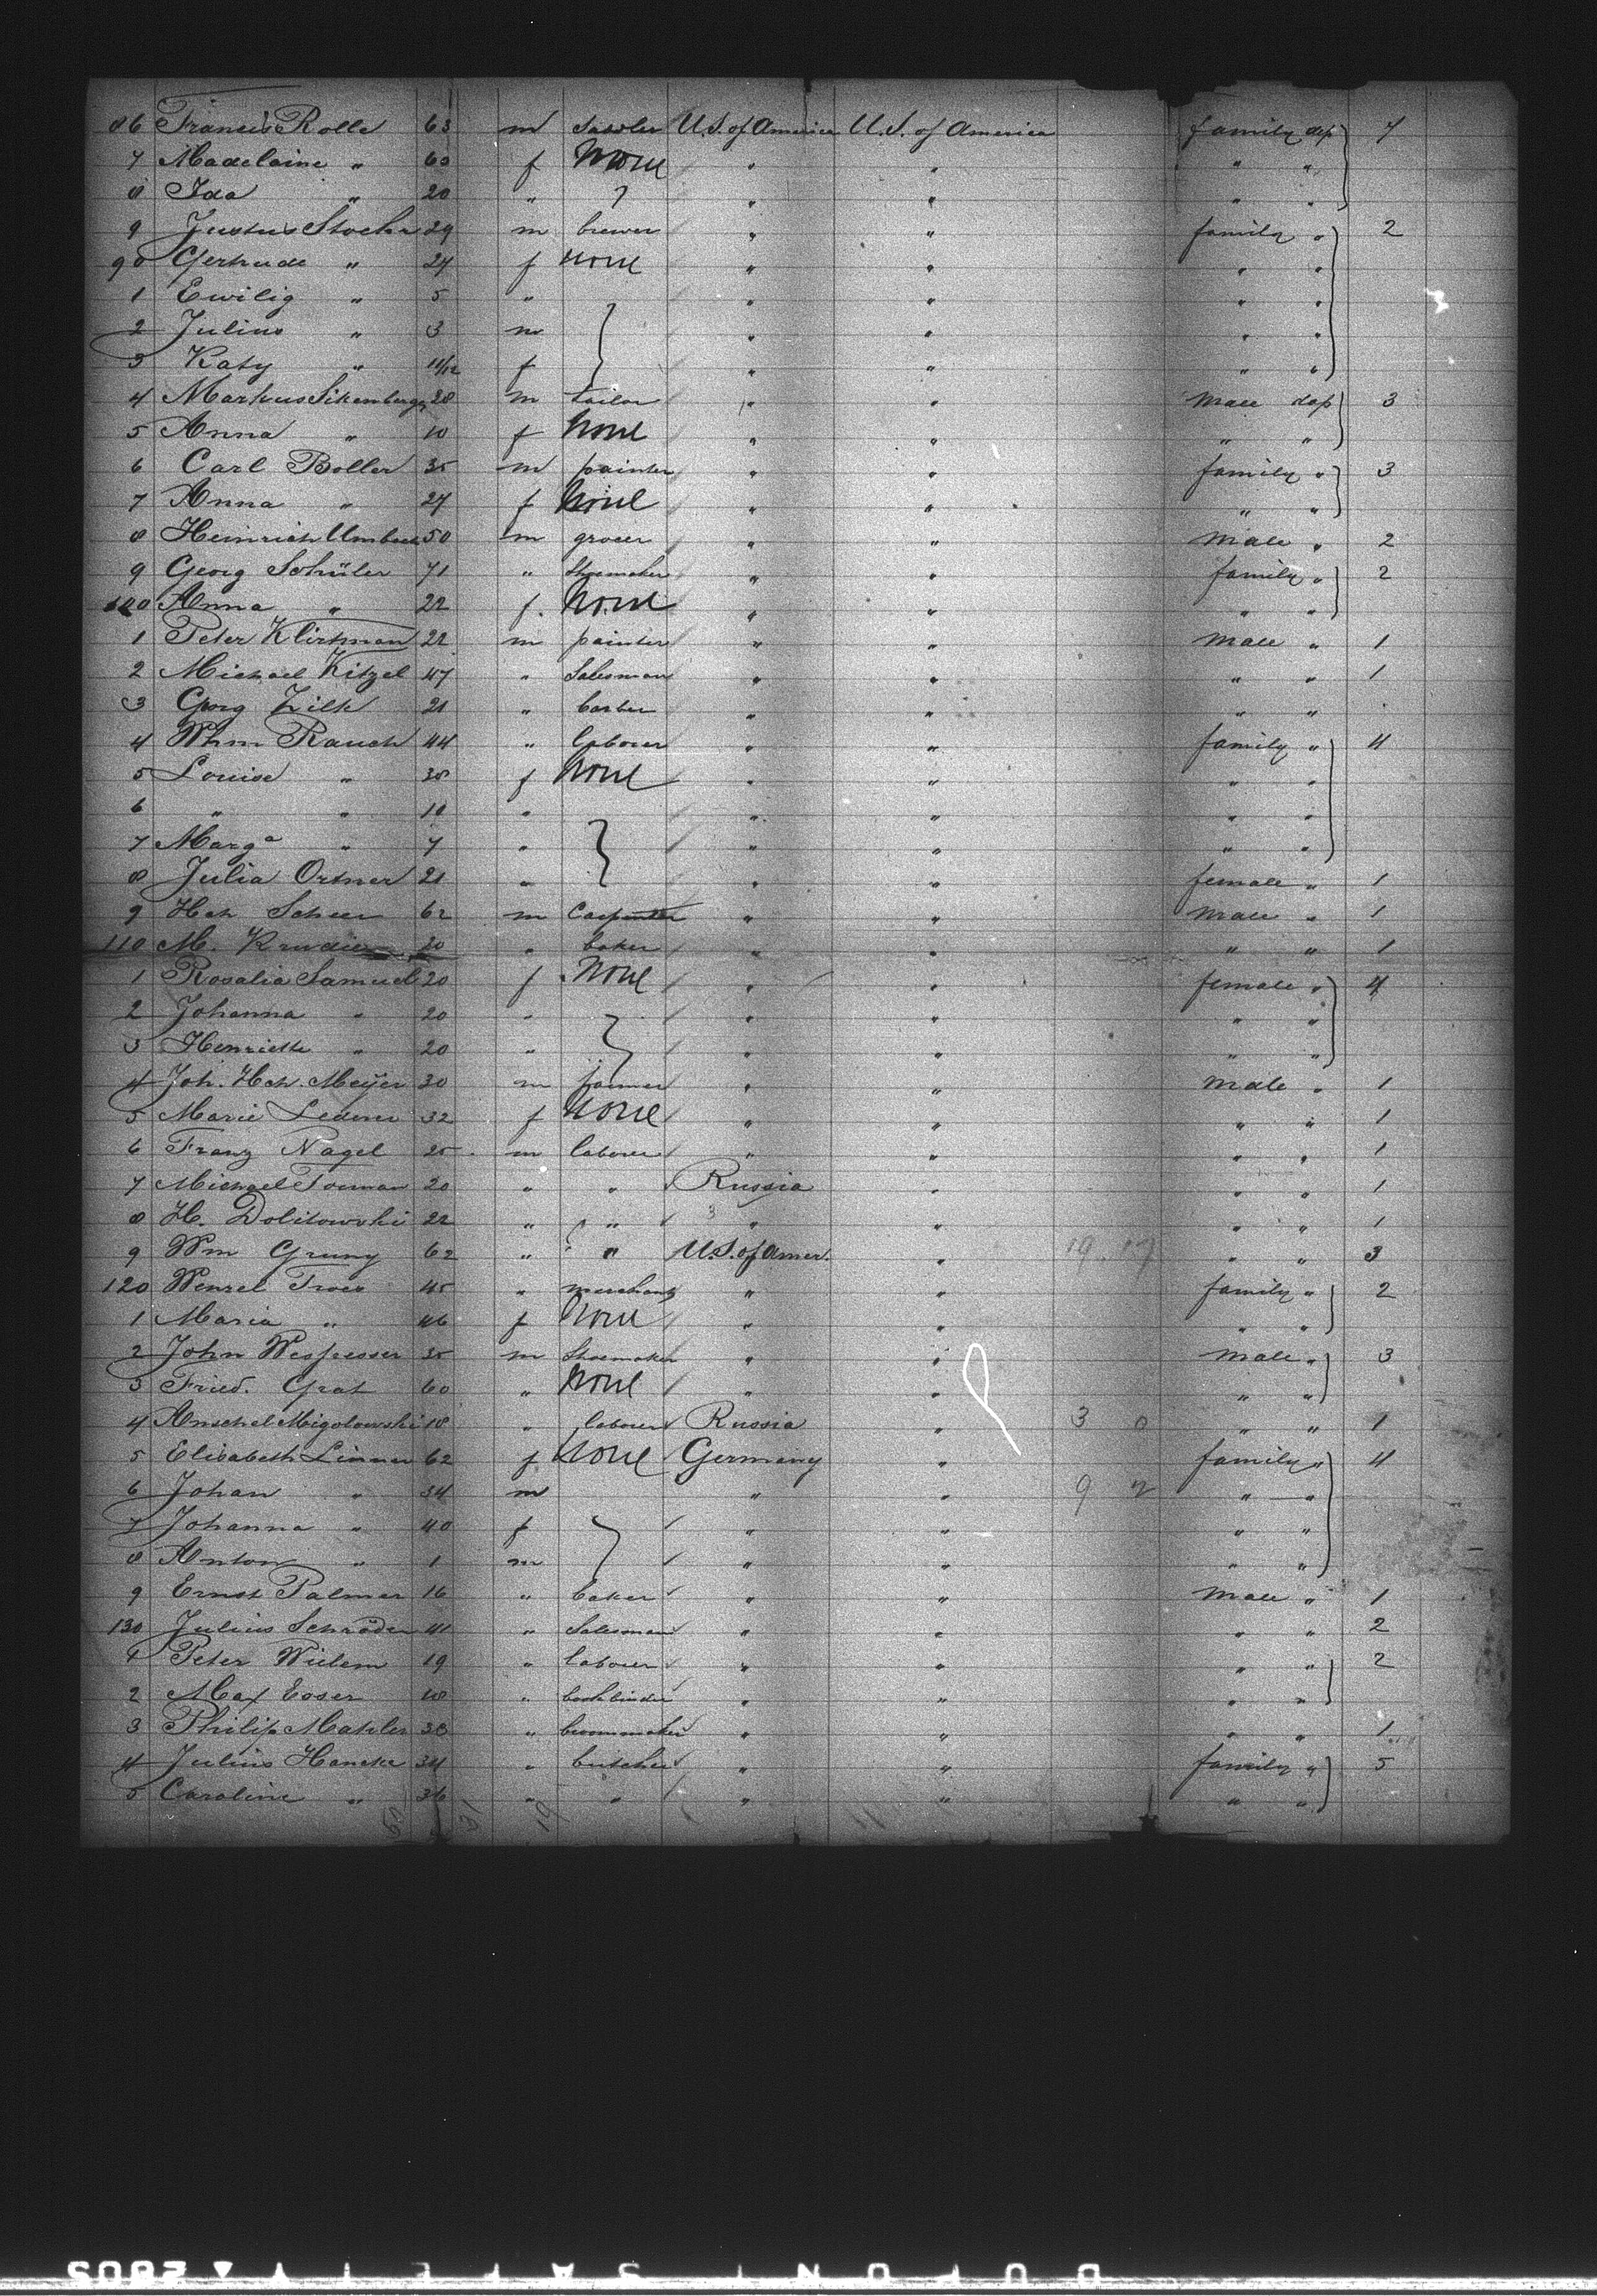 86 Francis Rolle 63 m U.S. of America U.S. of America family dep 7
7 Madelaine " 63 f None " " " "
8 Ida " 20 " " " " "
9 Justus 29 m brewer " " family " 2
90 Gertrude " 24 f None " " " "
1 Ewilig " 5 " " " " "
2 Julius " 3 m " " " "
3 Katy " 11/12 f " " " "
4 Markus 28 m tailor " " Male dep 3
5 Anna " 10 f None " " " "
6 Carl Boller 35 m painter " " family " 3
7 Anna " 27 f None " " " "
8 Heinrich 50 m grocer " " Male " 2
9 Georg Schüler 71 " Shoemaker " " family " 2
100 Anna " 22 f. None " " " "
1 Peter 22 m painter " " Male " 1
2 Michael Kitzel 47 " Salesman " " " " 1
3 Georg 21 " barber " " " "
4 Whm Rauch 44 " laborer " " family " 4
5 Louise " 38 f None " " " "
6 " " 10 " " " " "
7 Marga " 7 " " " " "
8 Julia Ortner 21 " " " female " 1
9 Hch 62 m Carpenter " " Male " 1
110 M. 20 " baker " " " " 1
1 Rosalia Samuel 20 f None " " female " 4
2 Johanna " 20 " " " " "
3 Henriette " 20 " " " " "
4 Joh. Hch. Meÿer 30 m farmer " " male " 1
5 Marie 32 f None " " " " 1
6 Franz Nagel 25 m laborer " " " " 1
7 Michael 20 " " Russia " " " 1
8 H. Dolitowski 22 " " " " " " 1
9 Wm 62 " " U.S. of Amer. " " " 3
120 Wenzel 45 " merchant " " family " 2
1 Maria " 46 f None " " " "
2 John 35 m Shoemaker " " Male " 3
3 Fried. 60 " None " " " "
4 Anschel Migolowski 18 " laborer Russia " 3 " " 1
5 Elisabeth 62 f None Germany " family " 4
6 Johan " 34 m " " 9 " "
7 Johanna " 40 f " " " "
8 Anton " 1 m " " " "
9 Ernst Palmer 16 " baker " " Male " 1
130 Julius Schröder 41 " Salesman " " " " 2
1 Peter Wielem 19 " laborer " " " " 2
2 Max 18 " bookbinder " " " "
3 Philip Mahler " " " " " 1
4 Julius Hancke 34 " butcher " " family " 5
5 Caroline " 36 " " " " " "